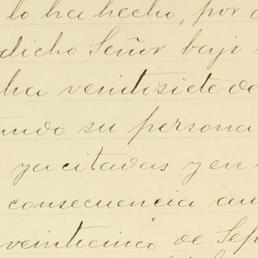 lo ha hecho, por
dicho Señor bajo
ha veintisiete de
su persona
ya citadas y en
consecuencia au
veinticinco de Sep